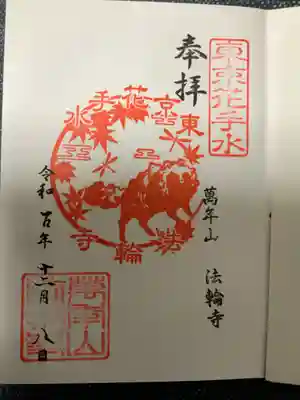 東京花手水
奉拝
東京花手水
法輪寺
萬年山 法輪寺
令和五年十二月八日